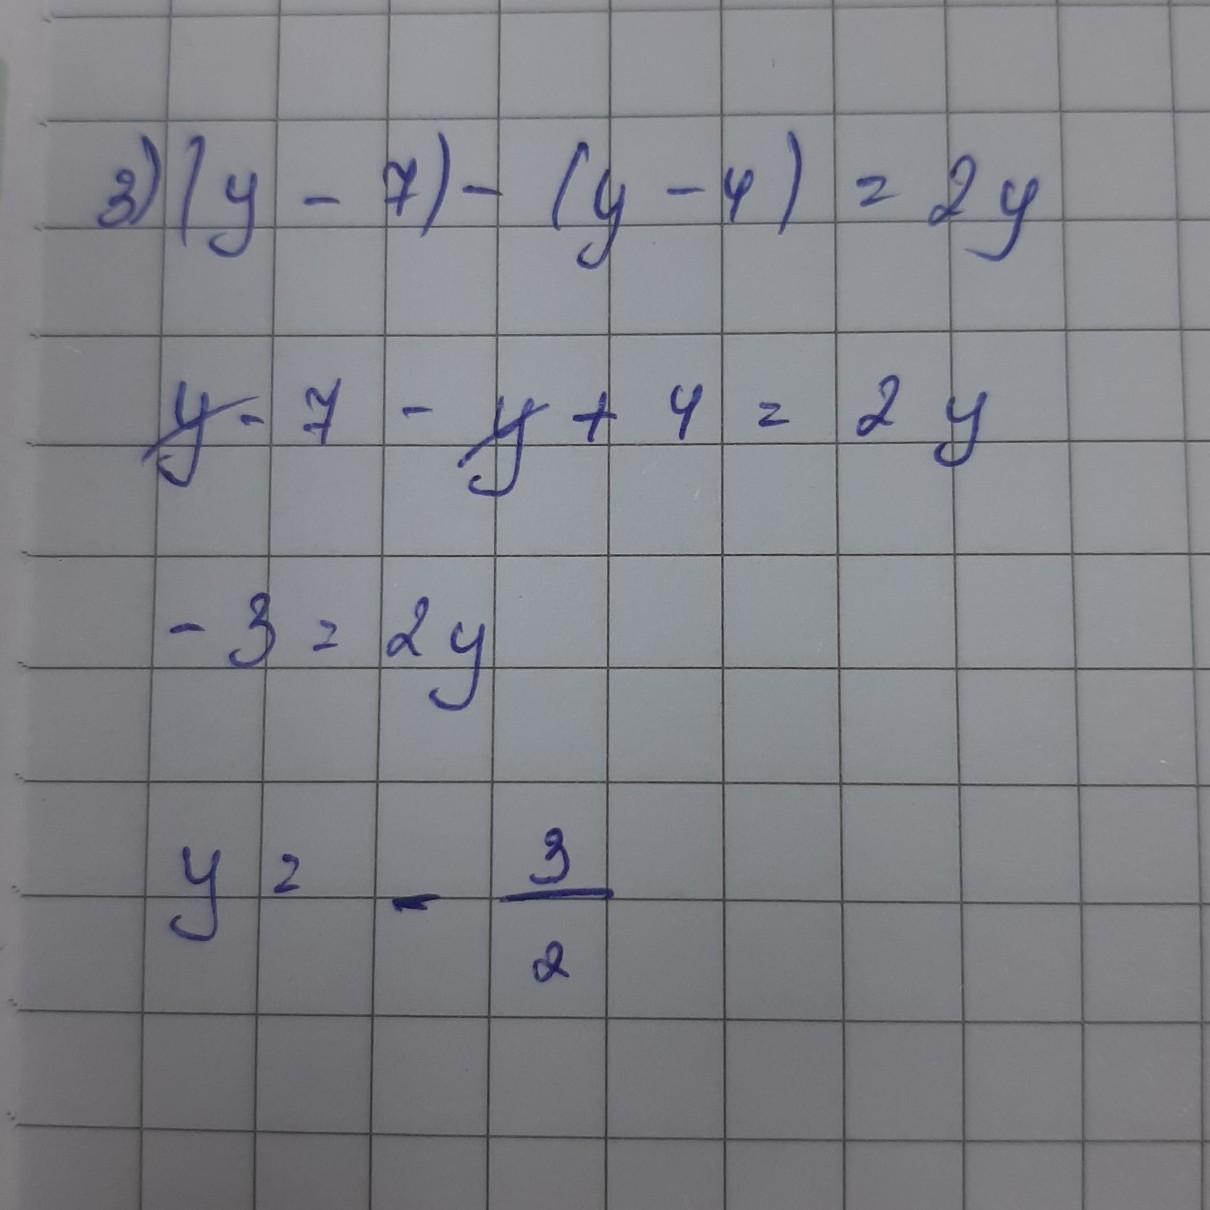 3) (y - 7) - (y - 4) = 2y
y - 7 - y + 4 = 2y
- 3 = 2y
y = - 3/2